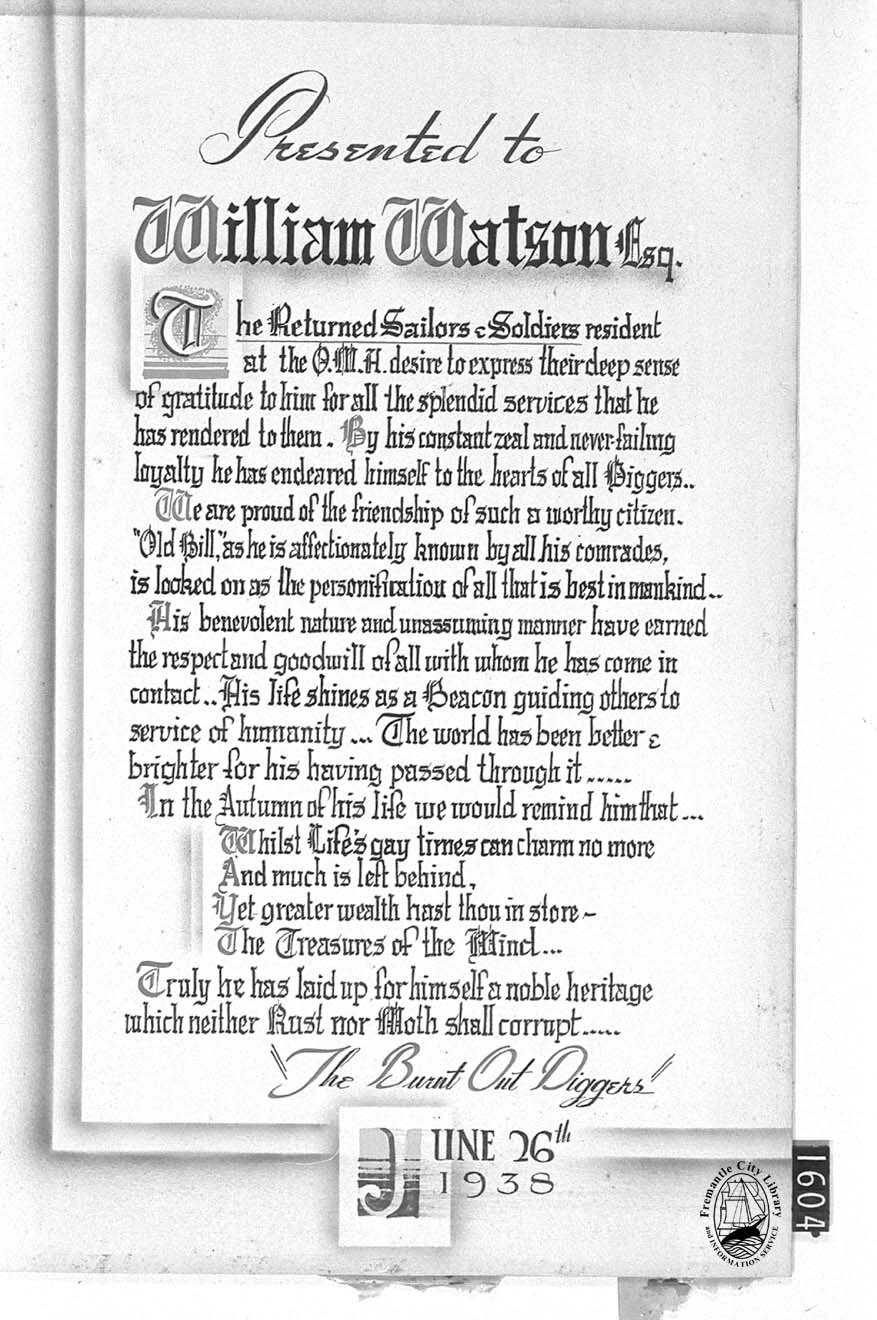 Presented to
William Watson Esq.
The Returned Sailors & Soldiers resident
at the O.M.H. desire to express their deep sense
of gratitude to him for all the splendid services that he
has rendered to them. By his constant zeal and never-failing
loyalty he has endeared himself to the hearts of all Diggers..
We are proud of the friendship of such a worthy citizen.
"Old Bill," as he is affectionately known by all his comrades,
is looked on as the personification of all that is best in mankind..
His benevolent nature and unassuming manner have earned
the respect and goodwill of all with whom he has come in
contact.. His life shines as a Beacon guiding others to
service of humanity... The world has been better &
brighter for his having passed through it.....
In the Autumn of his life we would remind him that...
Whilst Life's gay times can charm no more
And much is left behind,
Yet greater wealth hast thou in store -
The Treasures of the Mind...
Truly he has laid up for himself a noble heritage
which neither Rust nor Moth shall corrupt.....
"The Burnt Out Diggers"
JUNE 26th
1938
Fremantle City Library
and INFORMATION SERVICE
1604